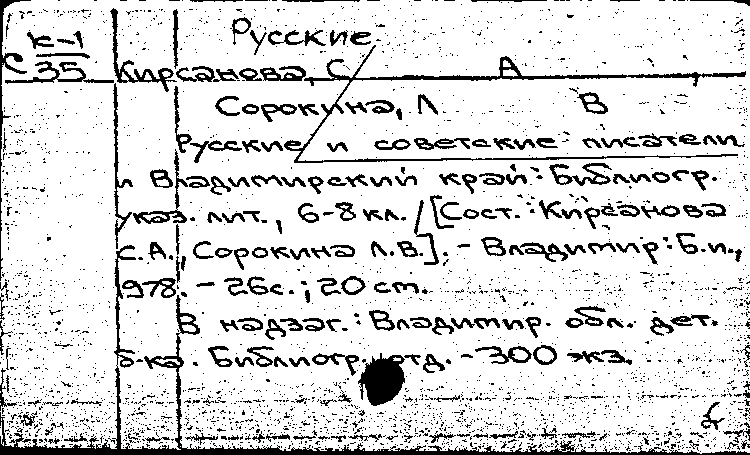 Русские
К-1
С 35
Кирсанова, С А
Сорокина, Л В
Русские и советские писатели
и Владимирский край: Библиогр.
указ. лит., 6-8 кл. / [Сост.: Кирсанова
С.А., Сорокина Л.В.]. - Владимир: Б.и.,
1978. - 26с.; 20 см.
В надзаг.: Владимир. обл. дет.
б-ка. Библиогр. отд. - 300 экз.